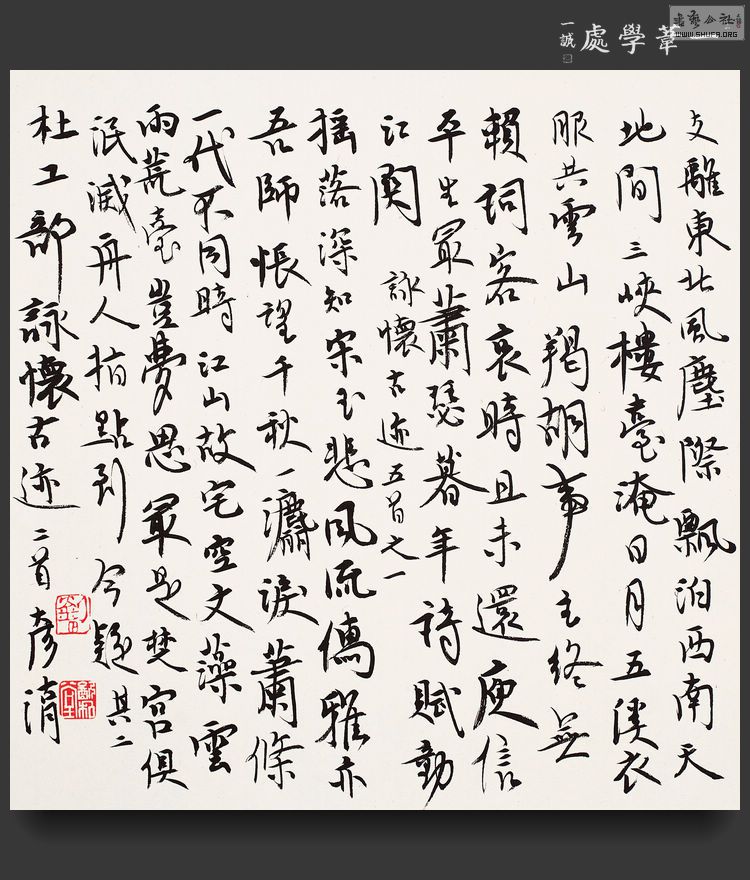 書藝公社
WWW.SHUFA.ORG
一葦學處
一誠
支離東北風塵際飄泊西南天
地間三峽樓臺淹日月五溪衣
服共雲山羯胡事主終無
賴詞客哀時且未還庾信
平生最蕭瑟暮年詩賦動
江関 詠懷古迹五首之一
搖落深知宋玉悲風流儒雅亦
吾師悵望千秋一灑淚蕭條
一代不同時江山故宅空文藻雲
雨荒臺豈夢思最是楚宮俱
泯滅舟人指點到今疑其二
杜工部詠懷古迹二首彥